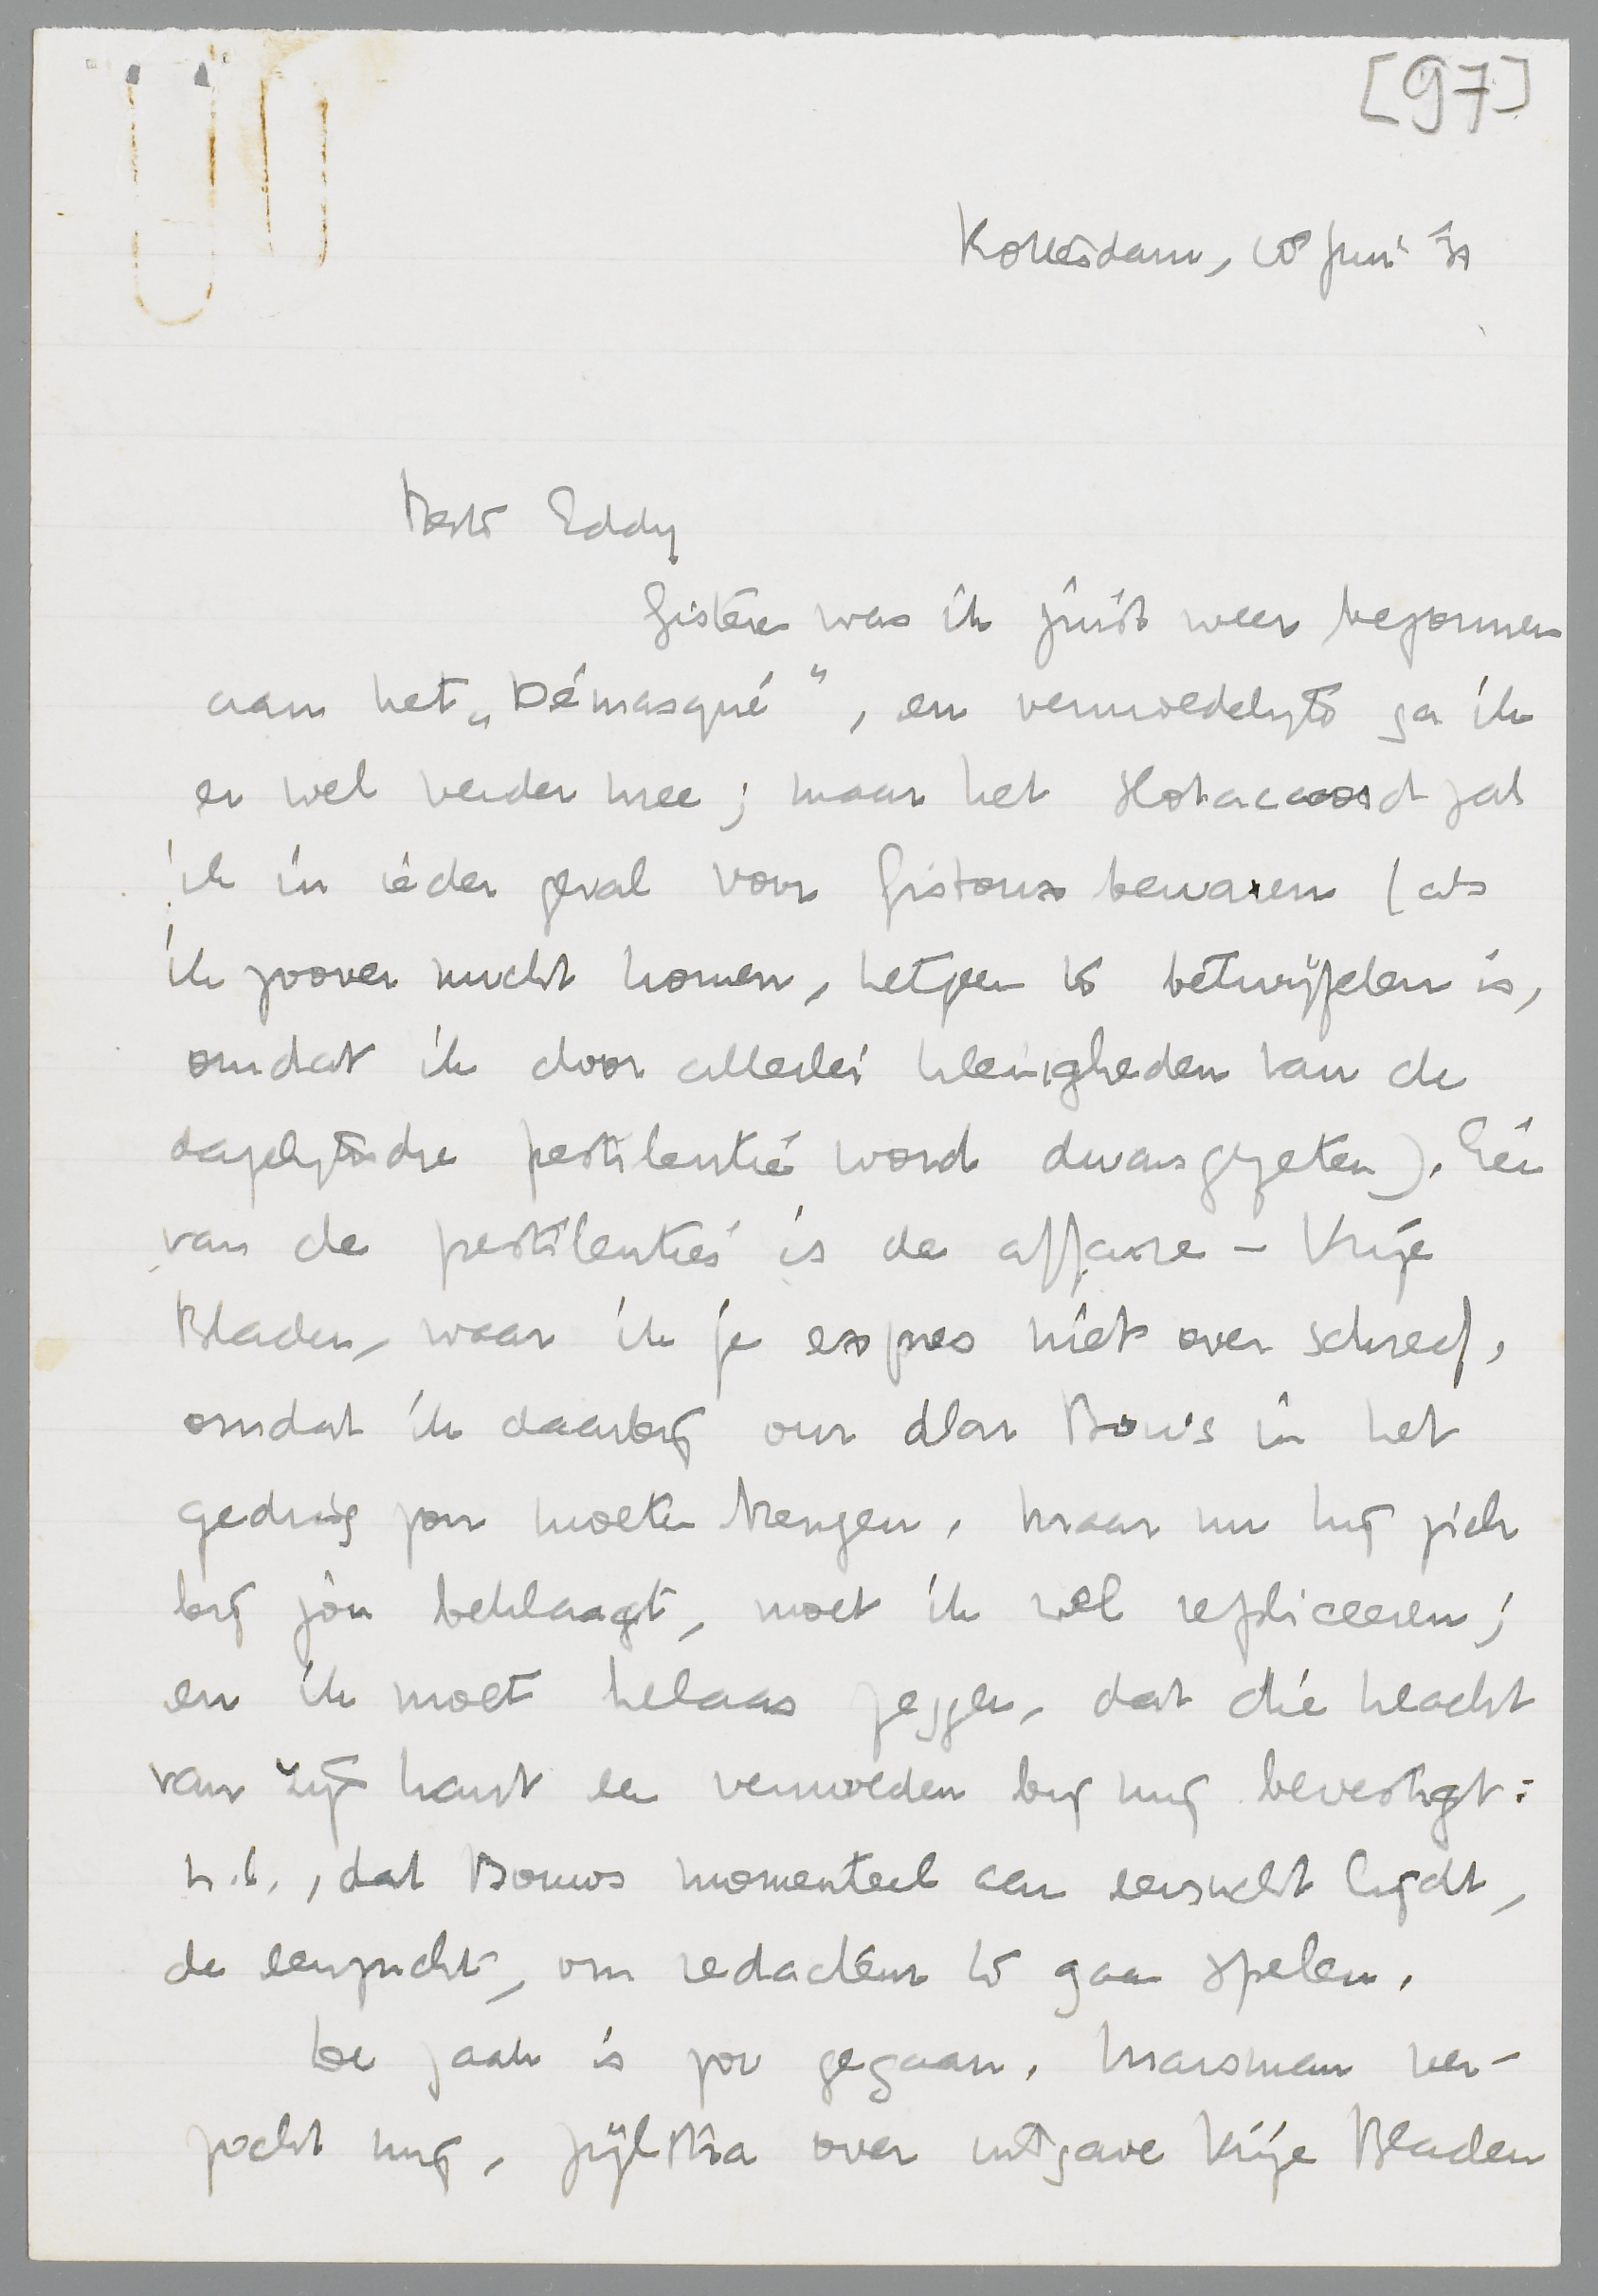 [97]
Rotterdam, 18 Juni '31
Beste Eddy
Gisteren was ik juist weer begonnen
aan het „Démasqué”, en vermoedelijk ga ik
er wel verder mee; maar het slotaccoord zal
ik in ieder geval voor Gistoux bewaren (als
ik zoover mocht komen, hetgeen te betwijfelen is,
omdat ik door allerlei kleinigheden van de
dagelijksche pestilentie word dwarsgezeten). Eén
van de pestilenties is de affaire - Vrije
Bladen, waar ik je expres niet over schreef,
omdat ik daarbij onzen Bouws in het
geding zou moeten brengen. Maar nu hij zich
bij jou beklaagt, moet ik wel repliceeren;
en ik moet helaas zeggen, dat die klacht
van zijn kant een vermoeden bij mij bevestigt:
n.l., dat Bouws momenteel aan eerzucht lijdt,
de eerzucht, om redacteur te gaan spelen.
De zaak is zoo gegaan. Marsman ver-
zocht mij, Zijlstra over uitgave Vrije Bladen